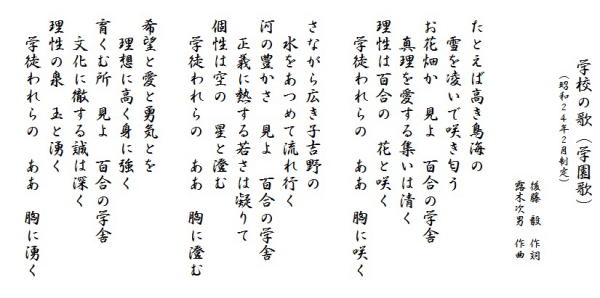 学校の歌（学園歌）
（昭和24年2月制定）
後藤 毅 作詞
露木次男 作曲
たとえば高き鳥海の
雪を凌いで咲き匂う
お花畑か 見よ 百合の学舎
真理を愛する集いは清く
理性は百合の 花と咲く
学徒われらの ああ 胸に咲く
さながら広き子吉野の
水をあつめて流れ行く
河の豊かさ 見よ 百合の学舎
正義に熱する若さは凝りて
個性は空の 星と澄む
学徒われらの ああ 胸に澄む
希望と愛と勇気とを
理想に高く身に強く
育くむ所 見よ 百合の学舎
文化に徹する誠は深く
理性の泉 玉と湧く
学徒われらの ああ 胸に湧く